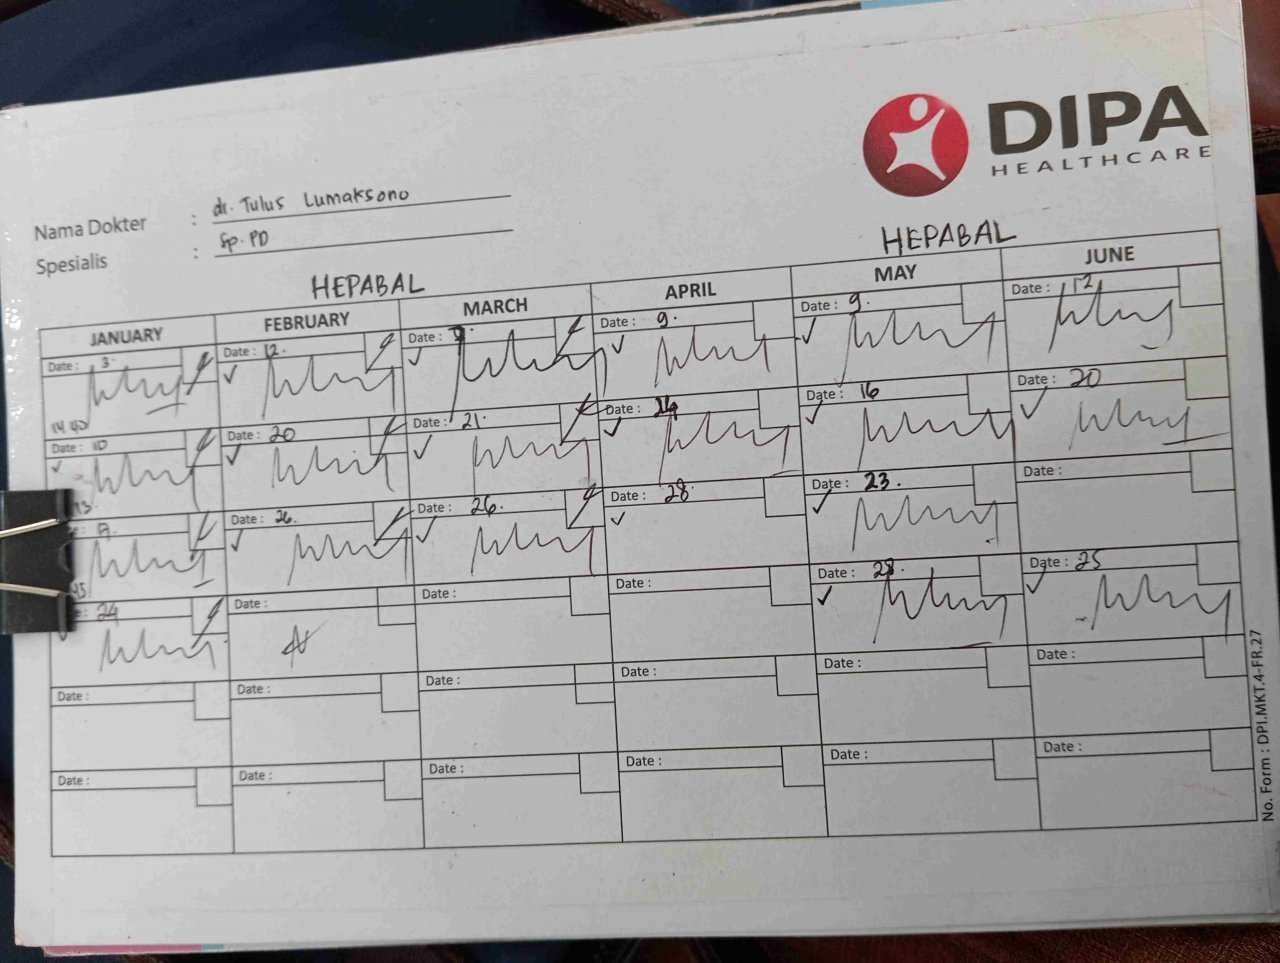 DIPA
HEALTHCARE
Nama Dokter : dr. Tulus Lumaksono
Spesialis : Sp. PD
HEPABAL HEPABAL
JANUARY FEBRUARY MARCH APRIL MAY JUNE
Date : 3. Date : 12. Date : Date : 9. Date : 9. Date : 12
14.40
Date : 10 Date : 20 Date : 21. Date : Date : 16 Date : 20
Date : 26. Date : 26. Date : 28. Date : 23. Date :
24 Date : Date : Date : Date : 28. Date : 25
Date : Date : Date : Date : Date : Date :
Date : Date : Date : Date : Date : Date :
No. Form : DPI.MKT.4-FR.27